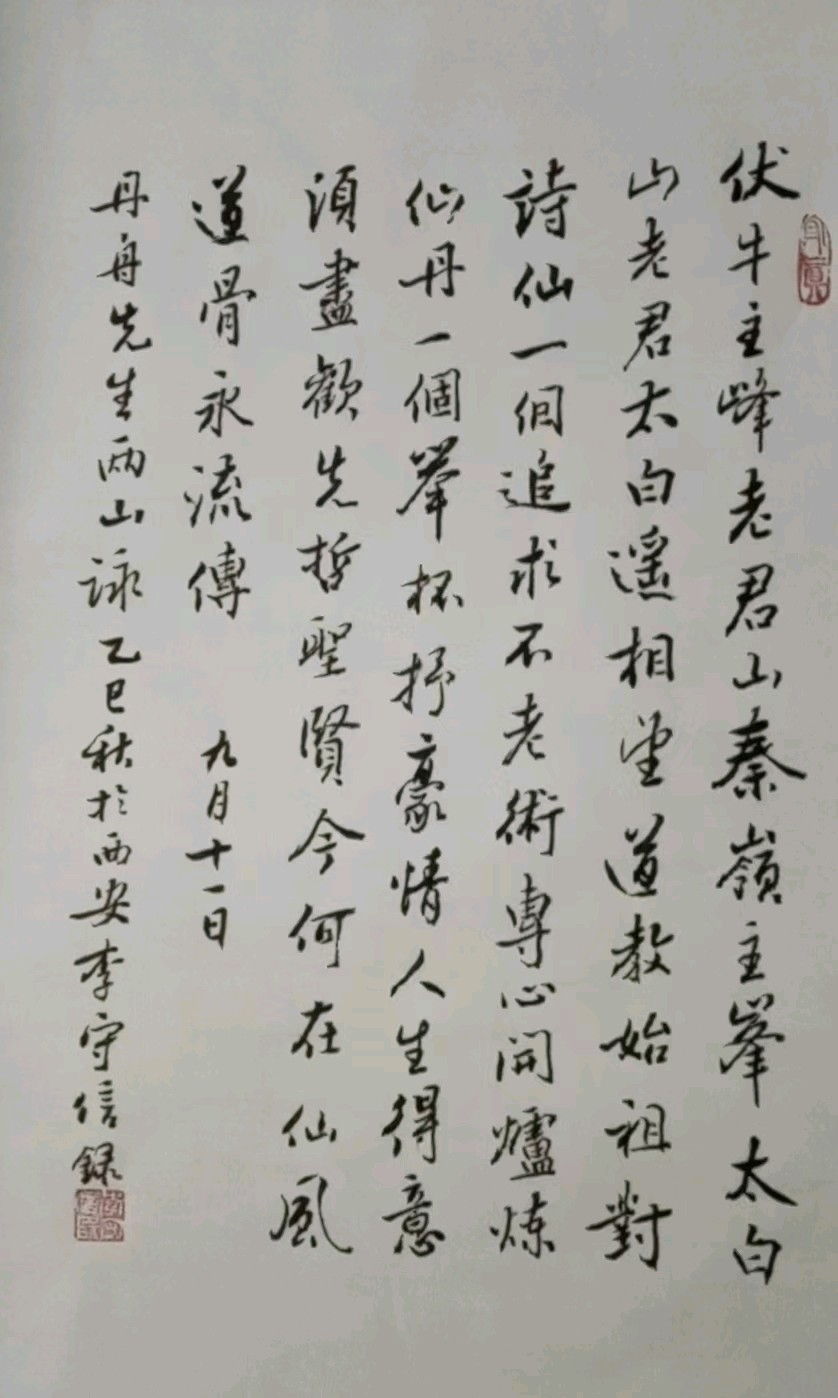 伏牛主峰老君山秦嶺主峯太白
山老君太白遥相望道教始祖對
詩仙一個追求不老術專心開爐炼
仙丹一個舉杯抒豪情人生得意
須盡歡先哲聖賢今何在仙風
道骨永流傳 九月十一日
丹舟先生兩山詠乙巳秋於西安李守信録